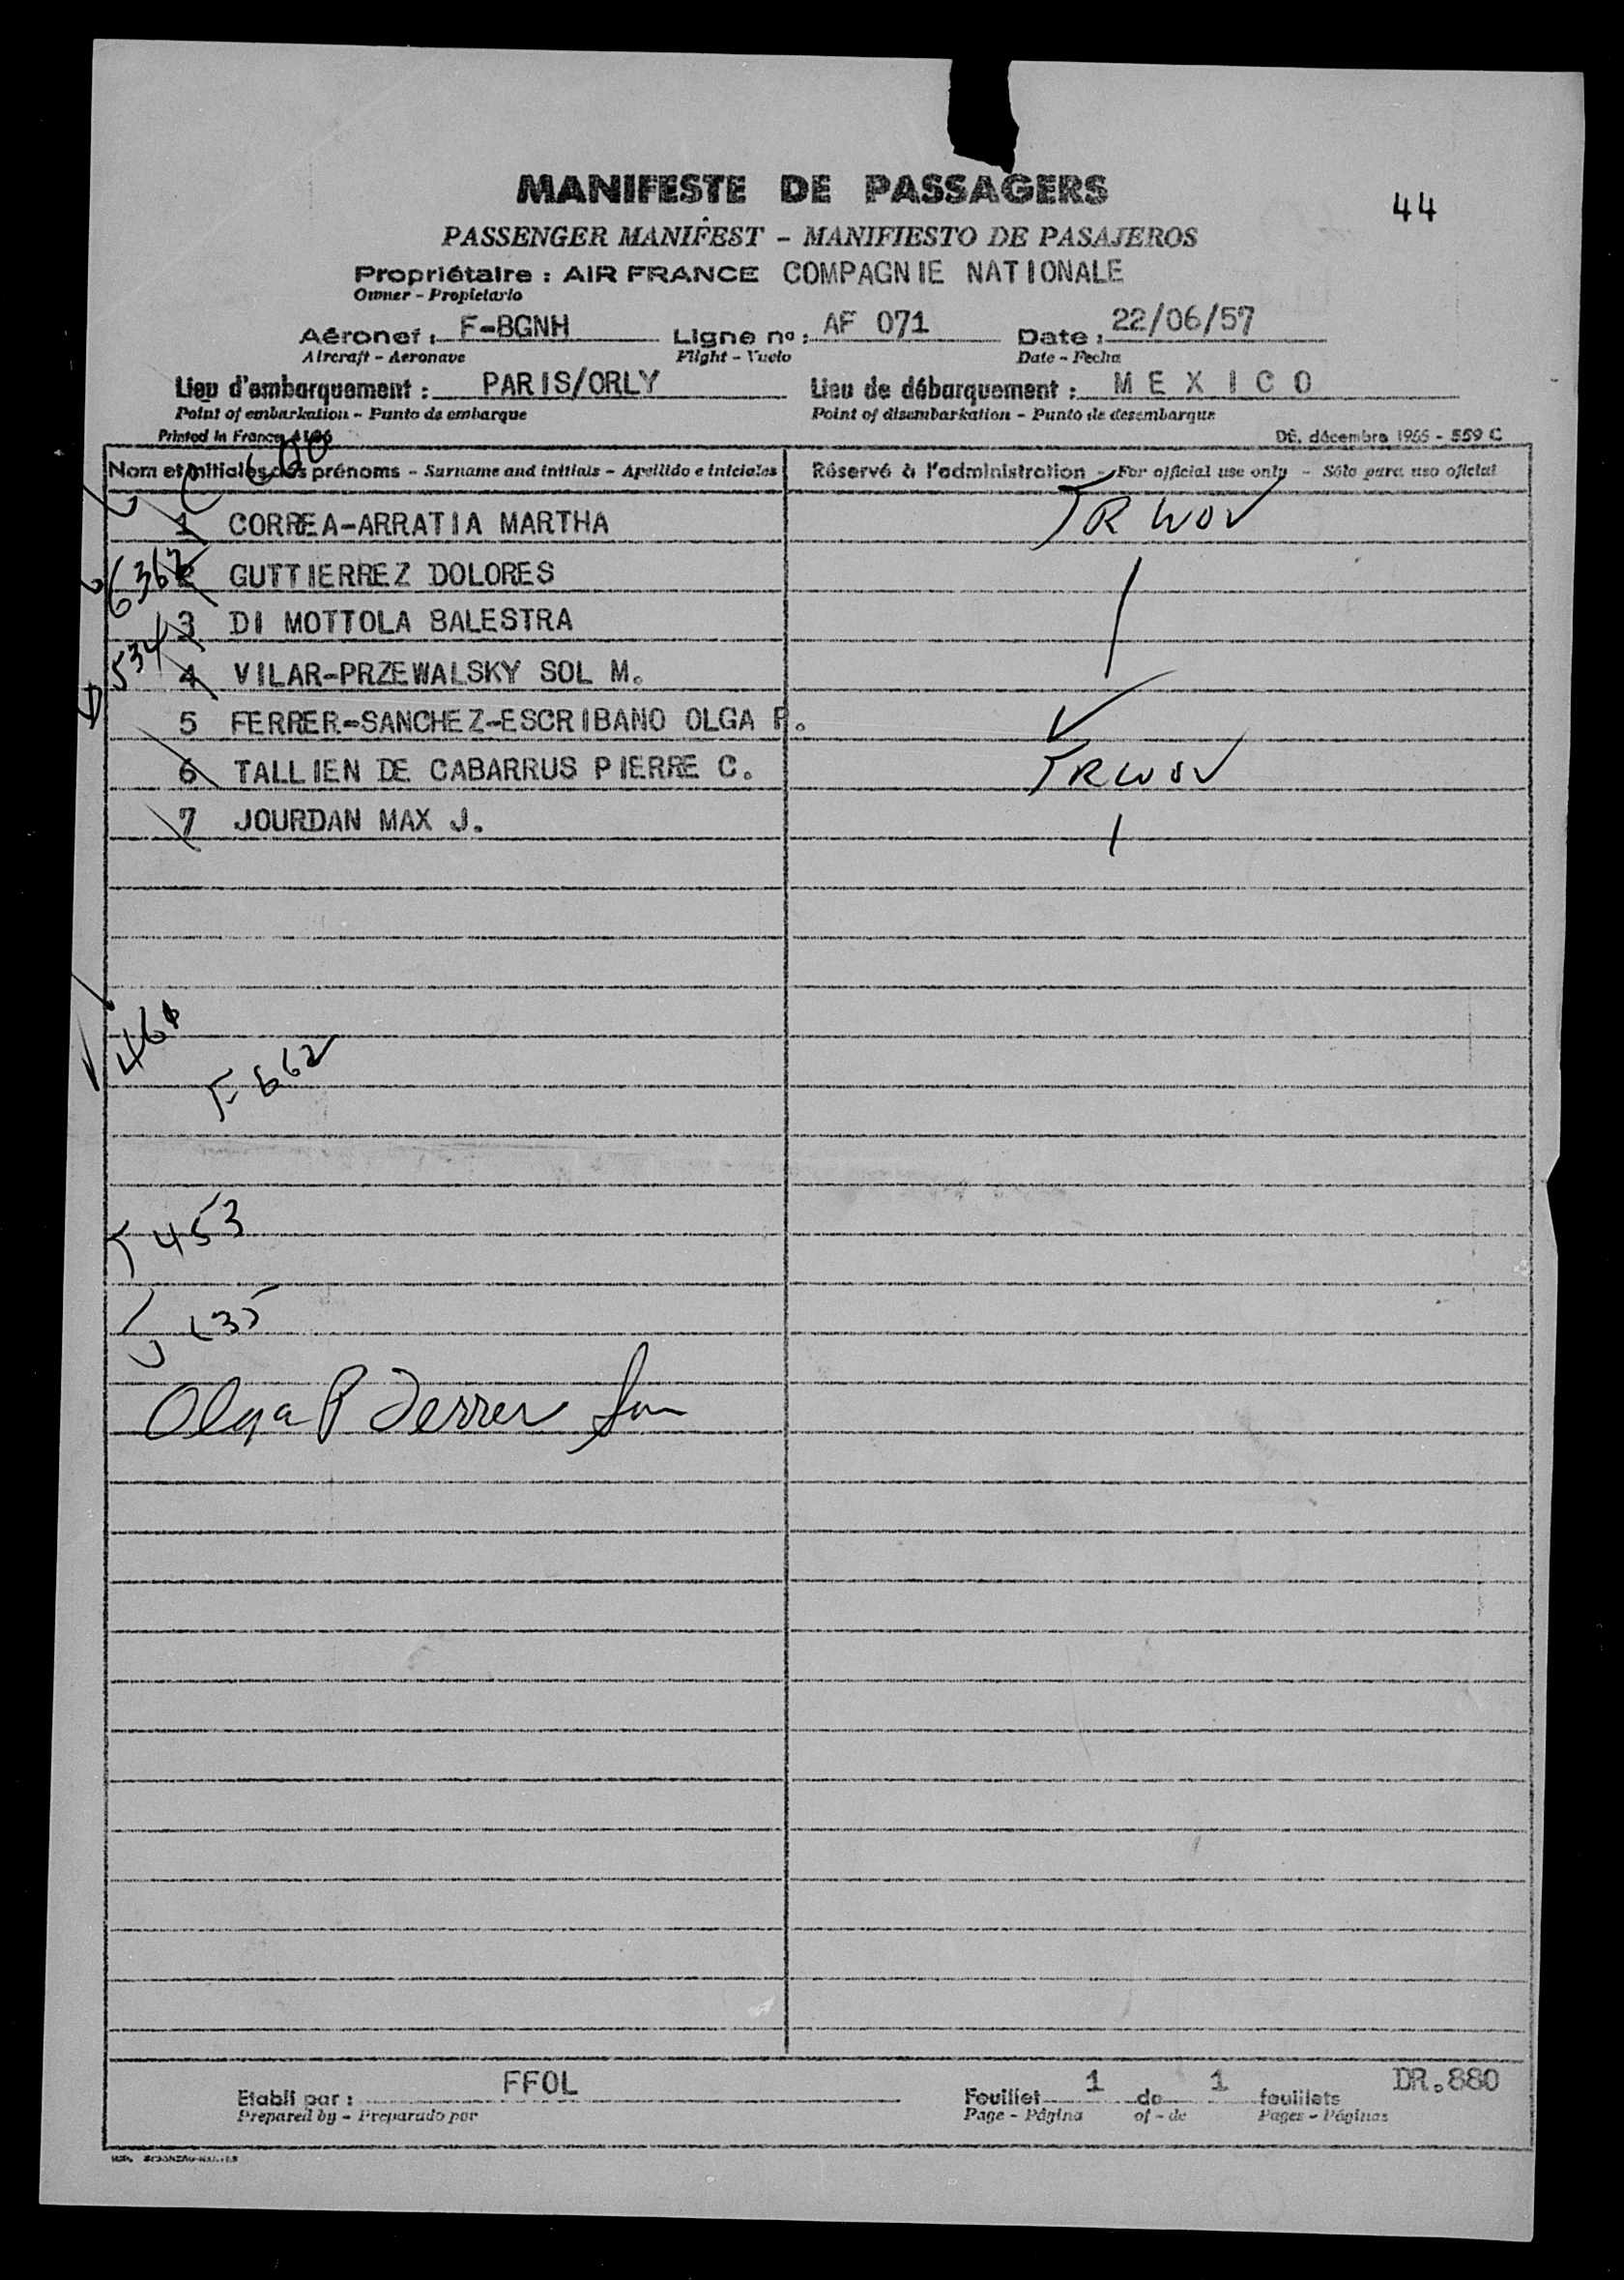 MANIFESTE DE PASSAGERS
44
PASSENGER MANIFEST - MANIFIESTO DE PASAJEROS
Propriétaire : AIR FRANCE COMPAGNIE NATIONALE
Owner - Propietario
Aéronef : F-BGNH Ligne nº : AF 071 Date : 22/06/57
Aircraft - Aeronave Flight - Vuelo Date - Fecha
Lieu d'embarquement : PARIS/ORLY Lieu de débarquement : MEXICO
Point of embarkation - Punto de embarque Point of disembarkation - Punto de desembarque
Printed in France Dt. décembre 1955 - 559 C
Nom et initiales des prénoms - Surname and initials - Apellido e iniciales Réservé à l'administration - For official use only - Sólo para uso oficial
1 CORREA-ARRATIA MARTHA TRWOV
6362
2 GUTTIERREZ DOLORES
3 DI MOTTOLA BALESTRA
534
4 VILAR-PRZEWALSKY SOL M.
5 FERRER-SANCHEZ-ESCRIBANO OLGA P.
6 TALLIEN DE CABARRUS PIERRE C. TRWOV
7 JOURDAN MAX J.
F 662
T 453
Olga P Ferrer San
Etabli par : FFOL Feuillet 1 de 1 feuillets DR.880
Prepared by - Preparado por Page - Página of - de Pages - Páginas